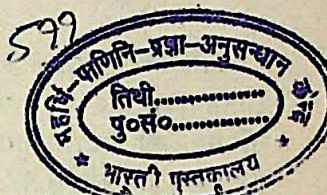 599
महर्षि-पाणिनि-प्रज्ञा-अनुसन्धान
तिथी..................
पु०सं०..................
* भारती पुस्तकालय *